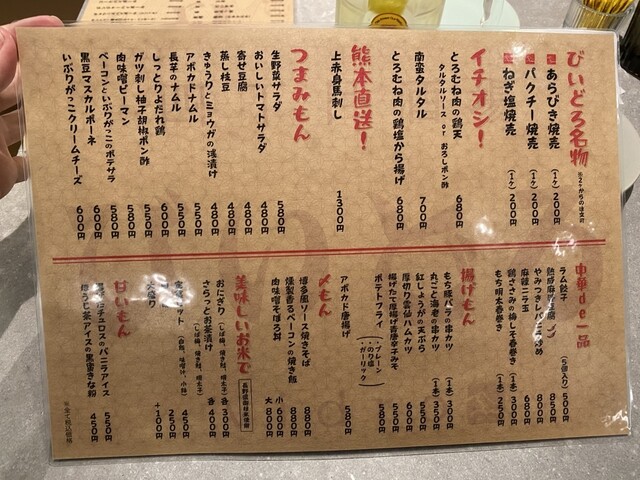 びいどろ名物 ※2ヶからの注文け
あらびき焼売 (1ヶ) 200円
パクチー焼売 (1ヶ) 200円
ねぎ塩焼売 (1ヶ) 200円
イチオシ!
とろむね肉の鶏天 680円
タルタルソース or おろしポン酢
南蛮タルタル 700円
とろむね肉の鶏塩から揚げ 680円
熊本直送!
上赤身馬刺し 1300円
つまみもん
生野菜サラダ 580円
おいしいトマトサラダ 480円
寄せ豆腐 480円
蒸し枝豆 480円
きゅうりとミョウガの浅漬け 480円
アボカドナムル 550円
長芋のナムル 550円
しっとりよだれ鶏 600円
ガツ刺し柚子胡椒ポン酢 550円
肉味噌ピーマン 580円
ベーコンといぶりがっこのポテサラ 580円
黒豆マスカルポーネ 600円
いぶりがっこクリームチーズ 600円
中華de一品
ラム餃子 (5個入り) 500円
熱成麻婆 850円
やみつきレバニラ炒め 800円
麻辣ニラ玉 680円
鶏ささみの梅しそ春巻き (1本) 300円
もち明太春巻き (1本) 250円
揚げもん
もち豚バラの串カツ (1本) 300円
丸ごと海老の串カツ (1本) 350円
紅しょうがの天ぷら 550円
厚切り雲仙ハムカツ 600円
揚げたて厚揚げ青唐辛子みそ 550円
ポテトフライ (・プレーン ・のり塩 ・ガーリック) 各550円
アボカド唐揚げ 580円
〆もん
博多風ソース焼きそば 880円
燻製香るベーコンの焼き飯 880円
肉味噌そぼろ丼 小600円 大800円
美味しいお米で 長野県御飯米使用
おにぎり (しば漬、焼き鮭、明太子) 各300円
さらっとお茶漬け (しば梅、焼き鮭、明太子) 各400円
セット (白飯、味噌汁、小鉢) 450円
250円
+100円
甘いもん
チュロスのバニラアイス 550円
ほうじ茶アイスの黒蜜きな粉 450円
※全て税込価格